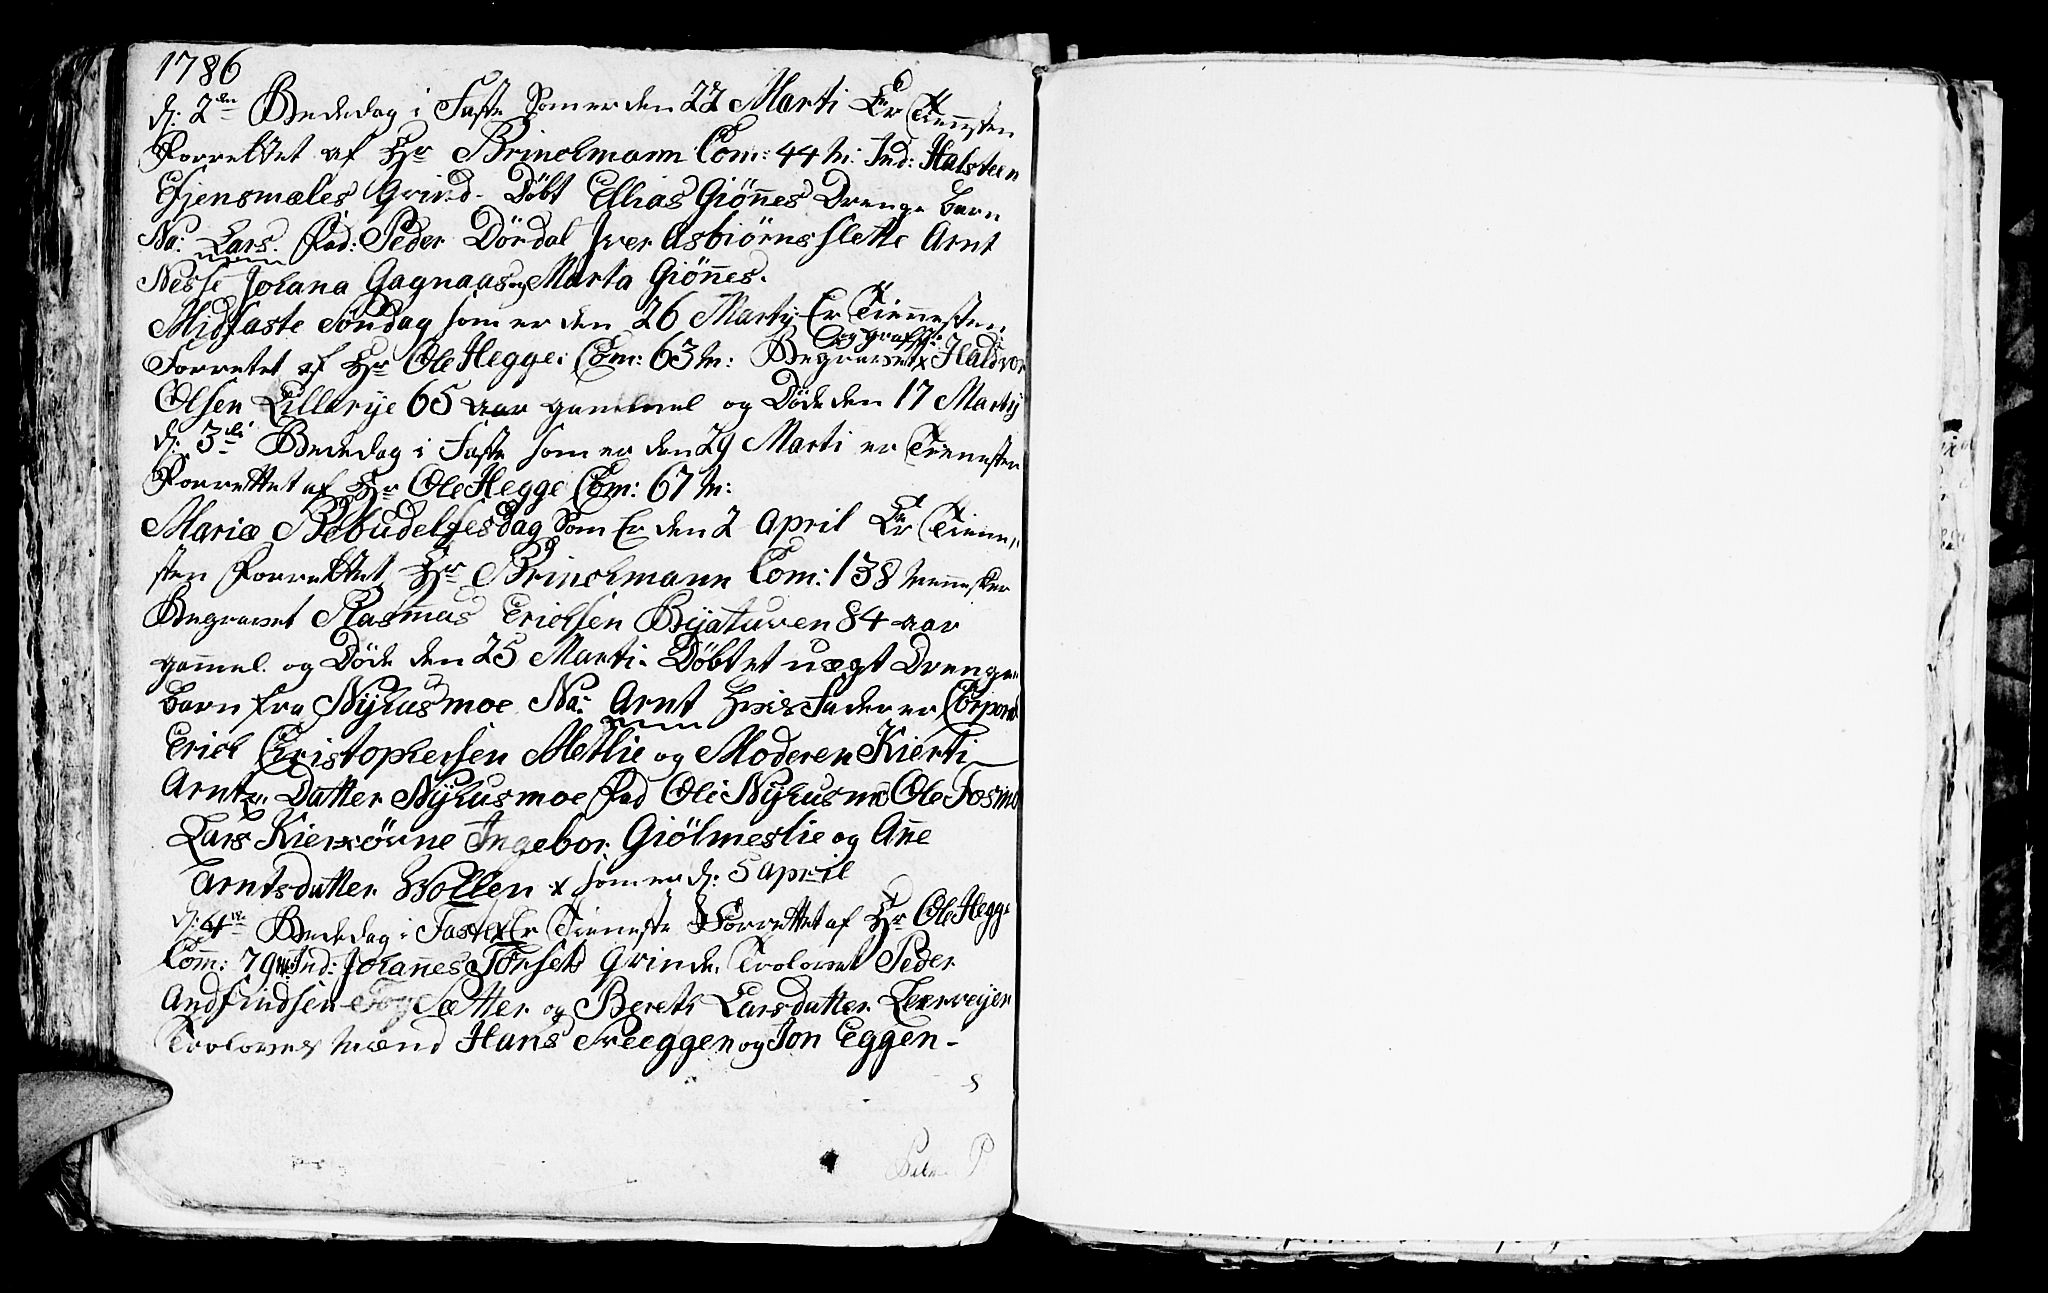 1786
d: 2den Bededag i Faste Som er den 22 Marti Er Tiennsten
Forrettet af Hr Brinchmann Com: 44 M: Ind: Halsteen
Giensmæles Grind. Døbt Ellias Giønnes Drenge barn
Na: Lars. Fad: Peder Dørdal Iver Asbiørnslette Arnt
Nesse Johana Gagnaas og Marta Giønnes.
Midfaste Søndag som er den 26 Martij Er Tiennesten
Forretet af Hr Ole Hegge: Com: 63 M: Begravet x Haldvor
Olsen Lillerye 65 aar gammel og Døde den 17 Martij
d: 3die Bededag i Faste som er den 29 Marti er Tienesten
Forrettet af Hr Ole Hegge Com: 67 M:
Mariæ Bebudelsesdag Som Er den 2 April Er Tienne-
sten Forrettet Hr Brinchmann Com: 138 Mennesker
Begravet Rasmus Erichsen Byaturen 84 aar
gammel og Døde den 25 Marti. Døbt et uægt Drenge
barn fra Nyhusmoe Na: Arnt hvis Fader er Corporal
Erich Christophersen Metlie og Moderen Kierti
Arnts Datter Nyhusmoe Fad Ole Nyhusmo Ole Fosmo
Lars Kierxørne Ingebor Giølmeslie og Anne
Arntsdatter Wollen x som er d: 5 April
d: 4de Bededag i Faste x Er Tieneste Forrettet af Hr Ole Hegge
Com: 79 M: Ind: Johannes Tørsets Grinde. Trolovet Peder
Andfindsen Fog Sætter og Berete Larsdatter Leerveyen
Trolovnes Mænd Hans Sreeggen og Jon Eggen -